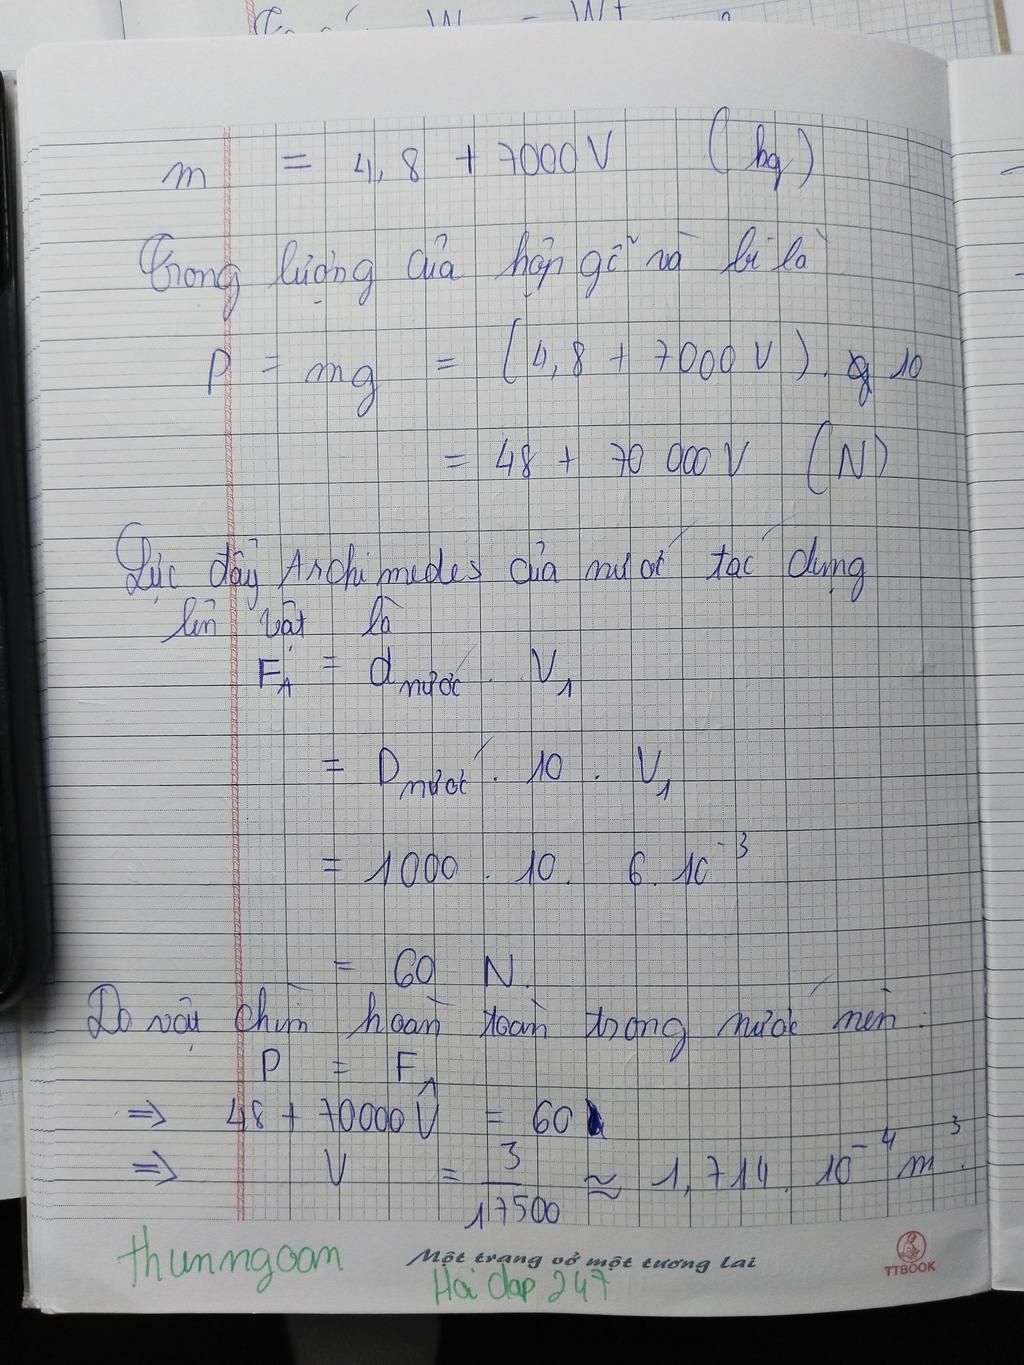 m = 4,8 + 7000V (kg)
Trong lượng của hộp gỗ và bi là
P = mg = (4,8 + 7000V). 10
= 48 + 70 000V (N)
Lực đẩy Archimedes của nước tác dụng
lên vật là
F_A = d_nước . V_1
= D_nước . 10 . V_1
= 1000 . 10 . 6 . 10^-3
= 60 N.
Do vật chìm hoàn toàn trong nước nên:
P = F_A
=> 48 + 70000V = 60
=> V = 3/17500 ≈ 1,714 . 10^-4 m^3.
thunngoan
Một trang vở một tương lai
TTBOOK
Hoi dap 247